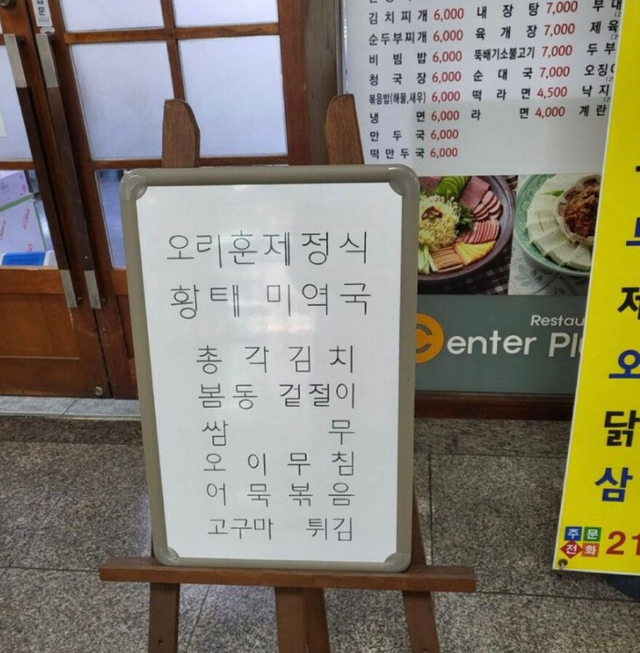 김치찌개 6,000 내장탕 7,000 부대
순두부찌개 6,000 육개장 7,000 제육
비빔밥 6,000 뚝배기소불고기 7,000 두부
청국장 6,000 순대국 7,000
볶음밥(해물,새우) 6,000 떡라면 4,500 낙지
냉면 6,000 라면 4,000 계란
만두국 6,000
떡만두국 6,000
오리훈제정식
황태 미역국
총각김치
봄동 겉절이
쌈무
오이무침
어묵볶음
고구마 튀김
Restau
Center Pl
제
오
닭
삼
주문
전화 21